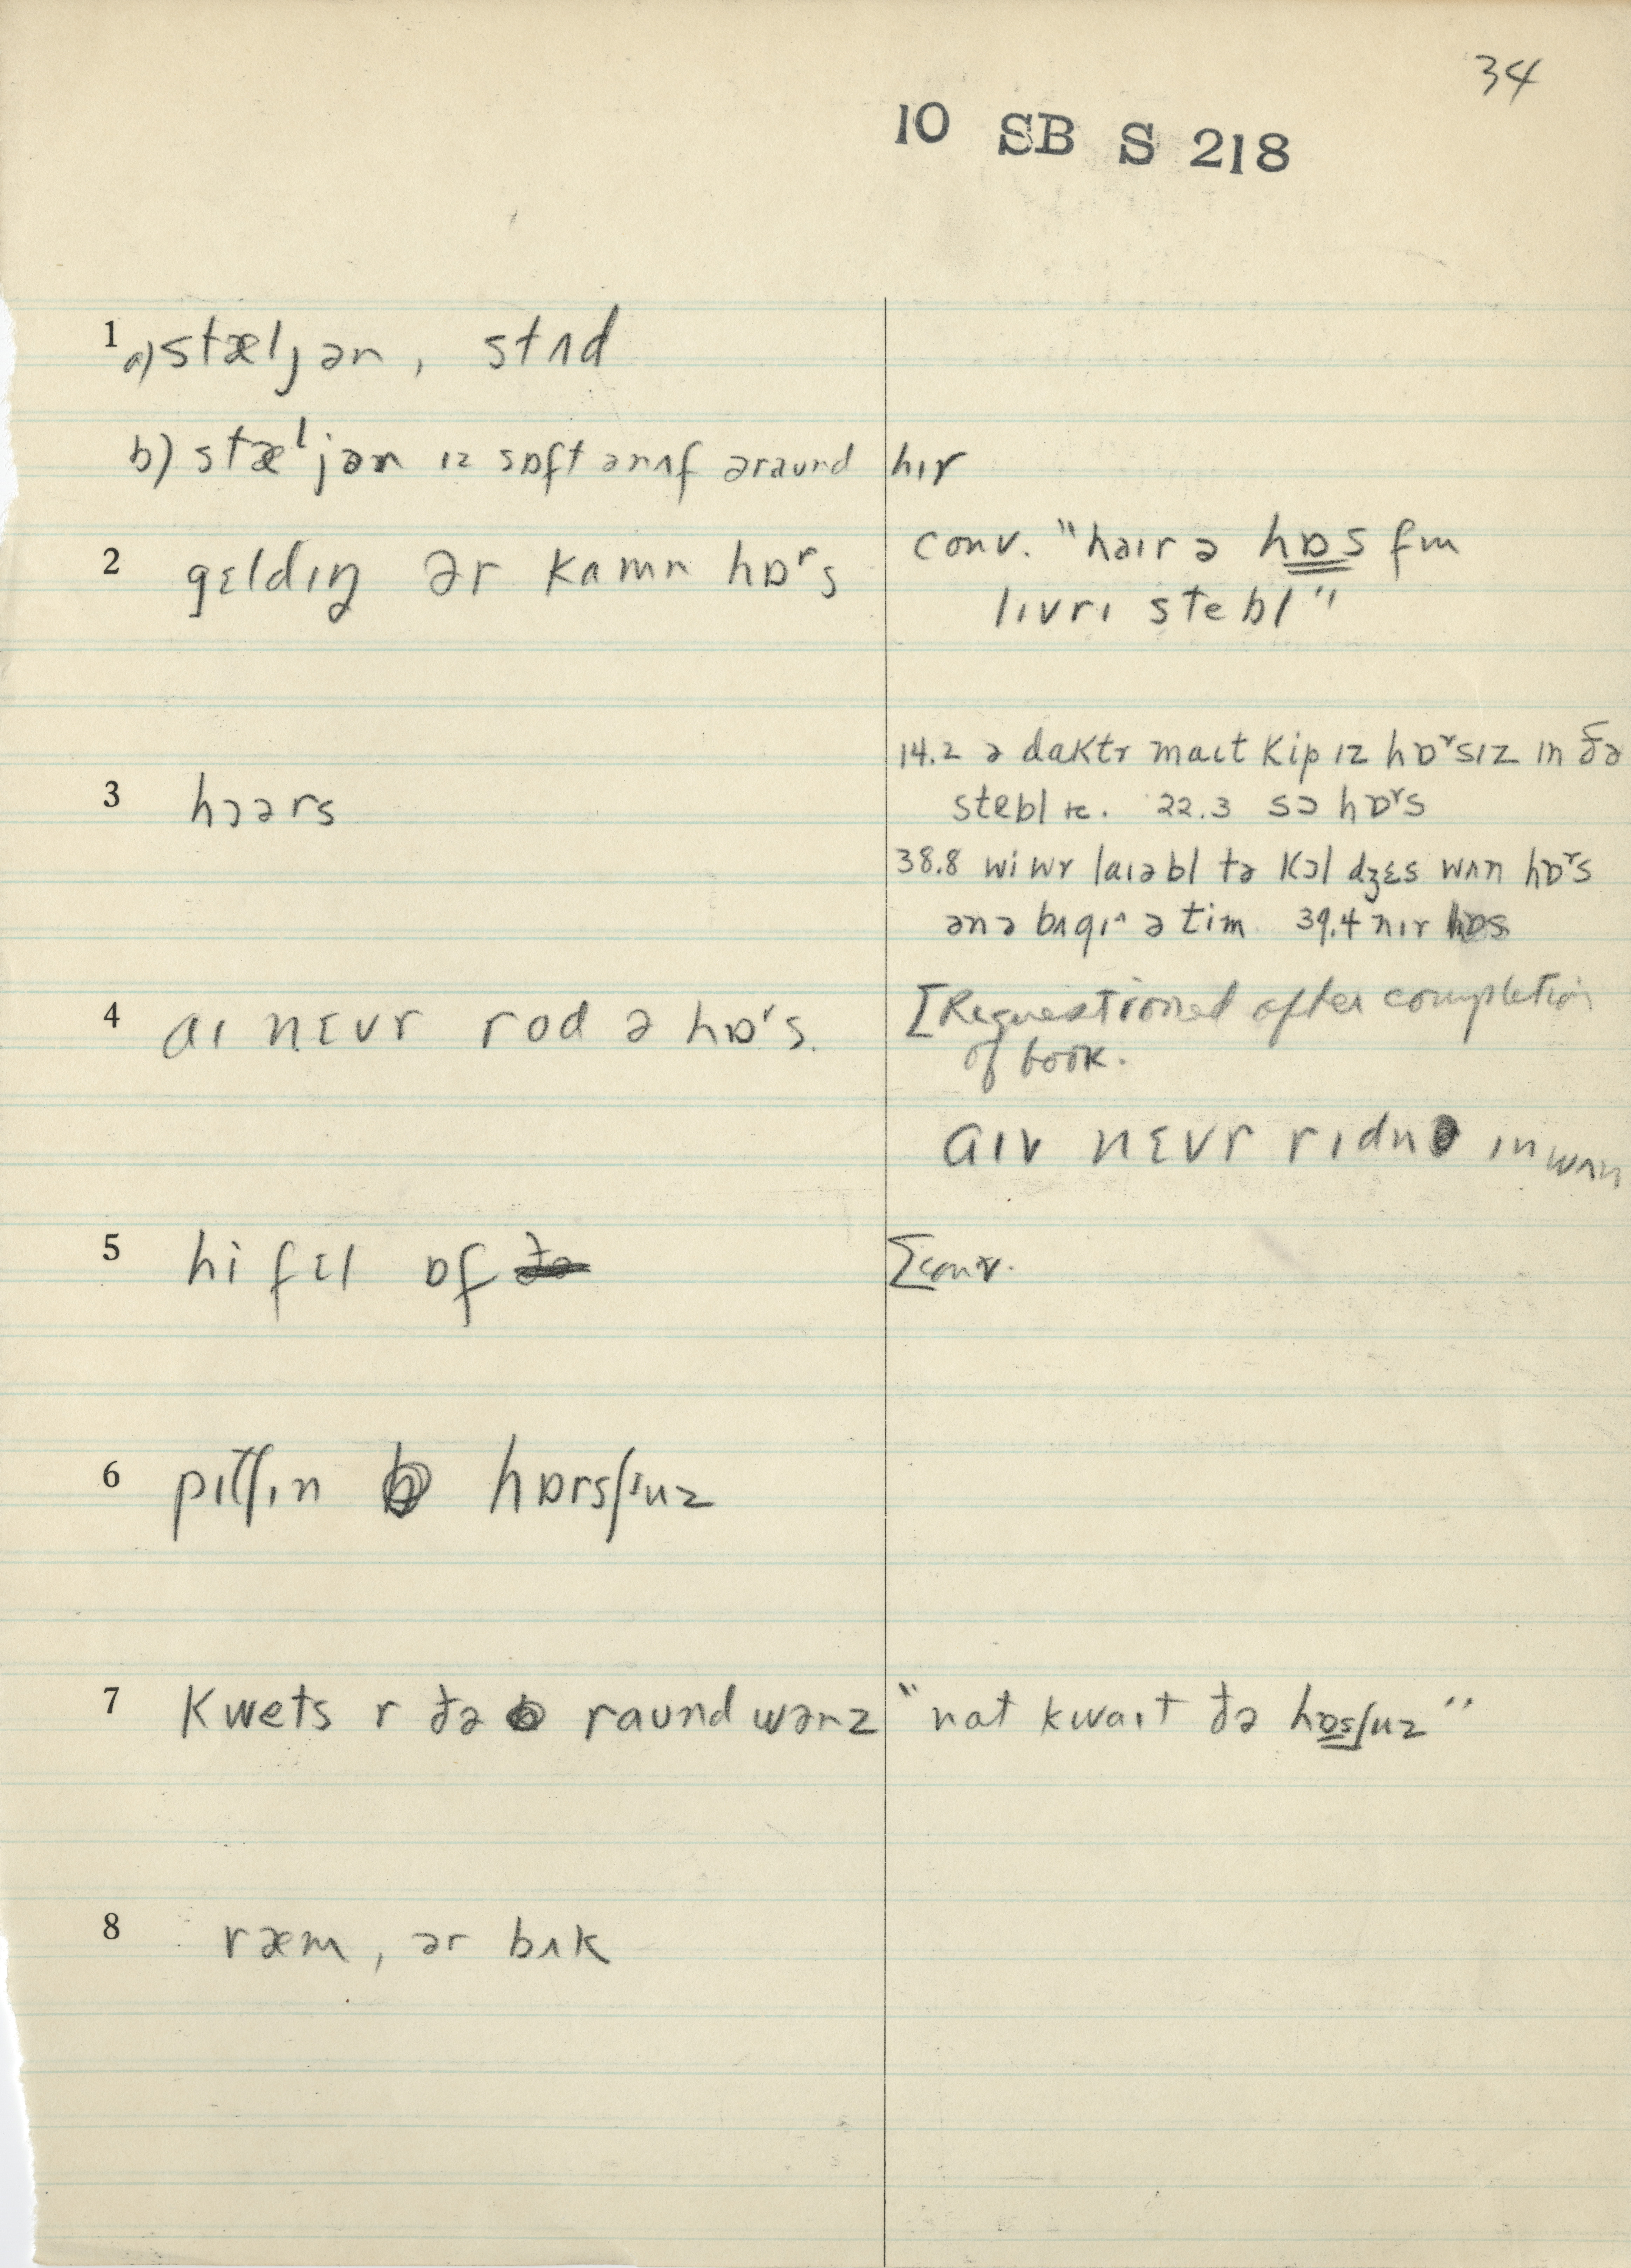 34
10 SB S 218
1 a) stæljən, stʌd
b) stæljən ɪz sɒft ənʌf əraund hɪr
2 gɛldɪŋ ər kamn hɒʳs
conv. "haɪr ə hɒs fm
lɪvrɪ stebl"
3 hɔərs
14.2 ə daktr maɪt kip ɪz hɒʳsɪz ɪn ðə
stebl tc. 22.3 sɔ hɒʳs
38.8 wi wr laɪəbl tə kɔl dʒɛs wʌn hɒʳs
ənə bʌgɪ^ ə tim 39.4 nɪr hɒs
4 aɪ nɛvr rod ə hɒʳs.
[Requestioned after completion
of book.
aɪv nɛvr rɪdn ɪn wʌn
5 hi fɛl ɒf ðə
[conv.
6 pɪtʃɪn hɒrsʃuz
7 kwets r ðə raund wənz
"nat kwaɪt ðə hɒsʃuz"
8 ræm, ər bʌk